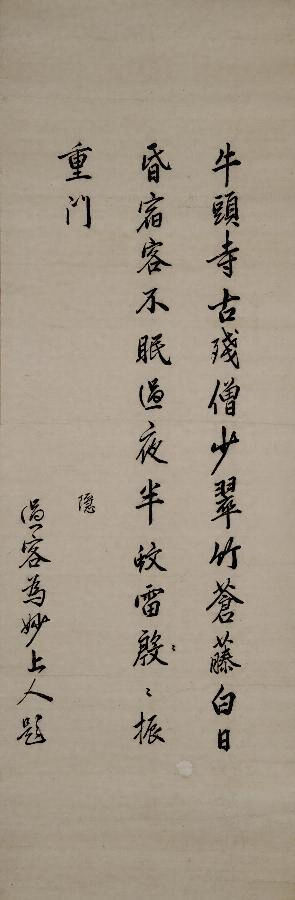 牛頭寺古殘僧少翠竹蒼藤白日
昏宿客不眠過夜半蛟雷殷〻振
重門
隱
過客為妙上人題